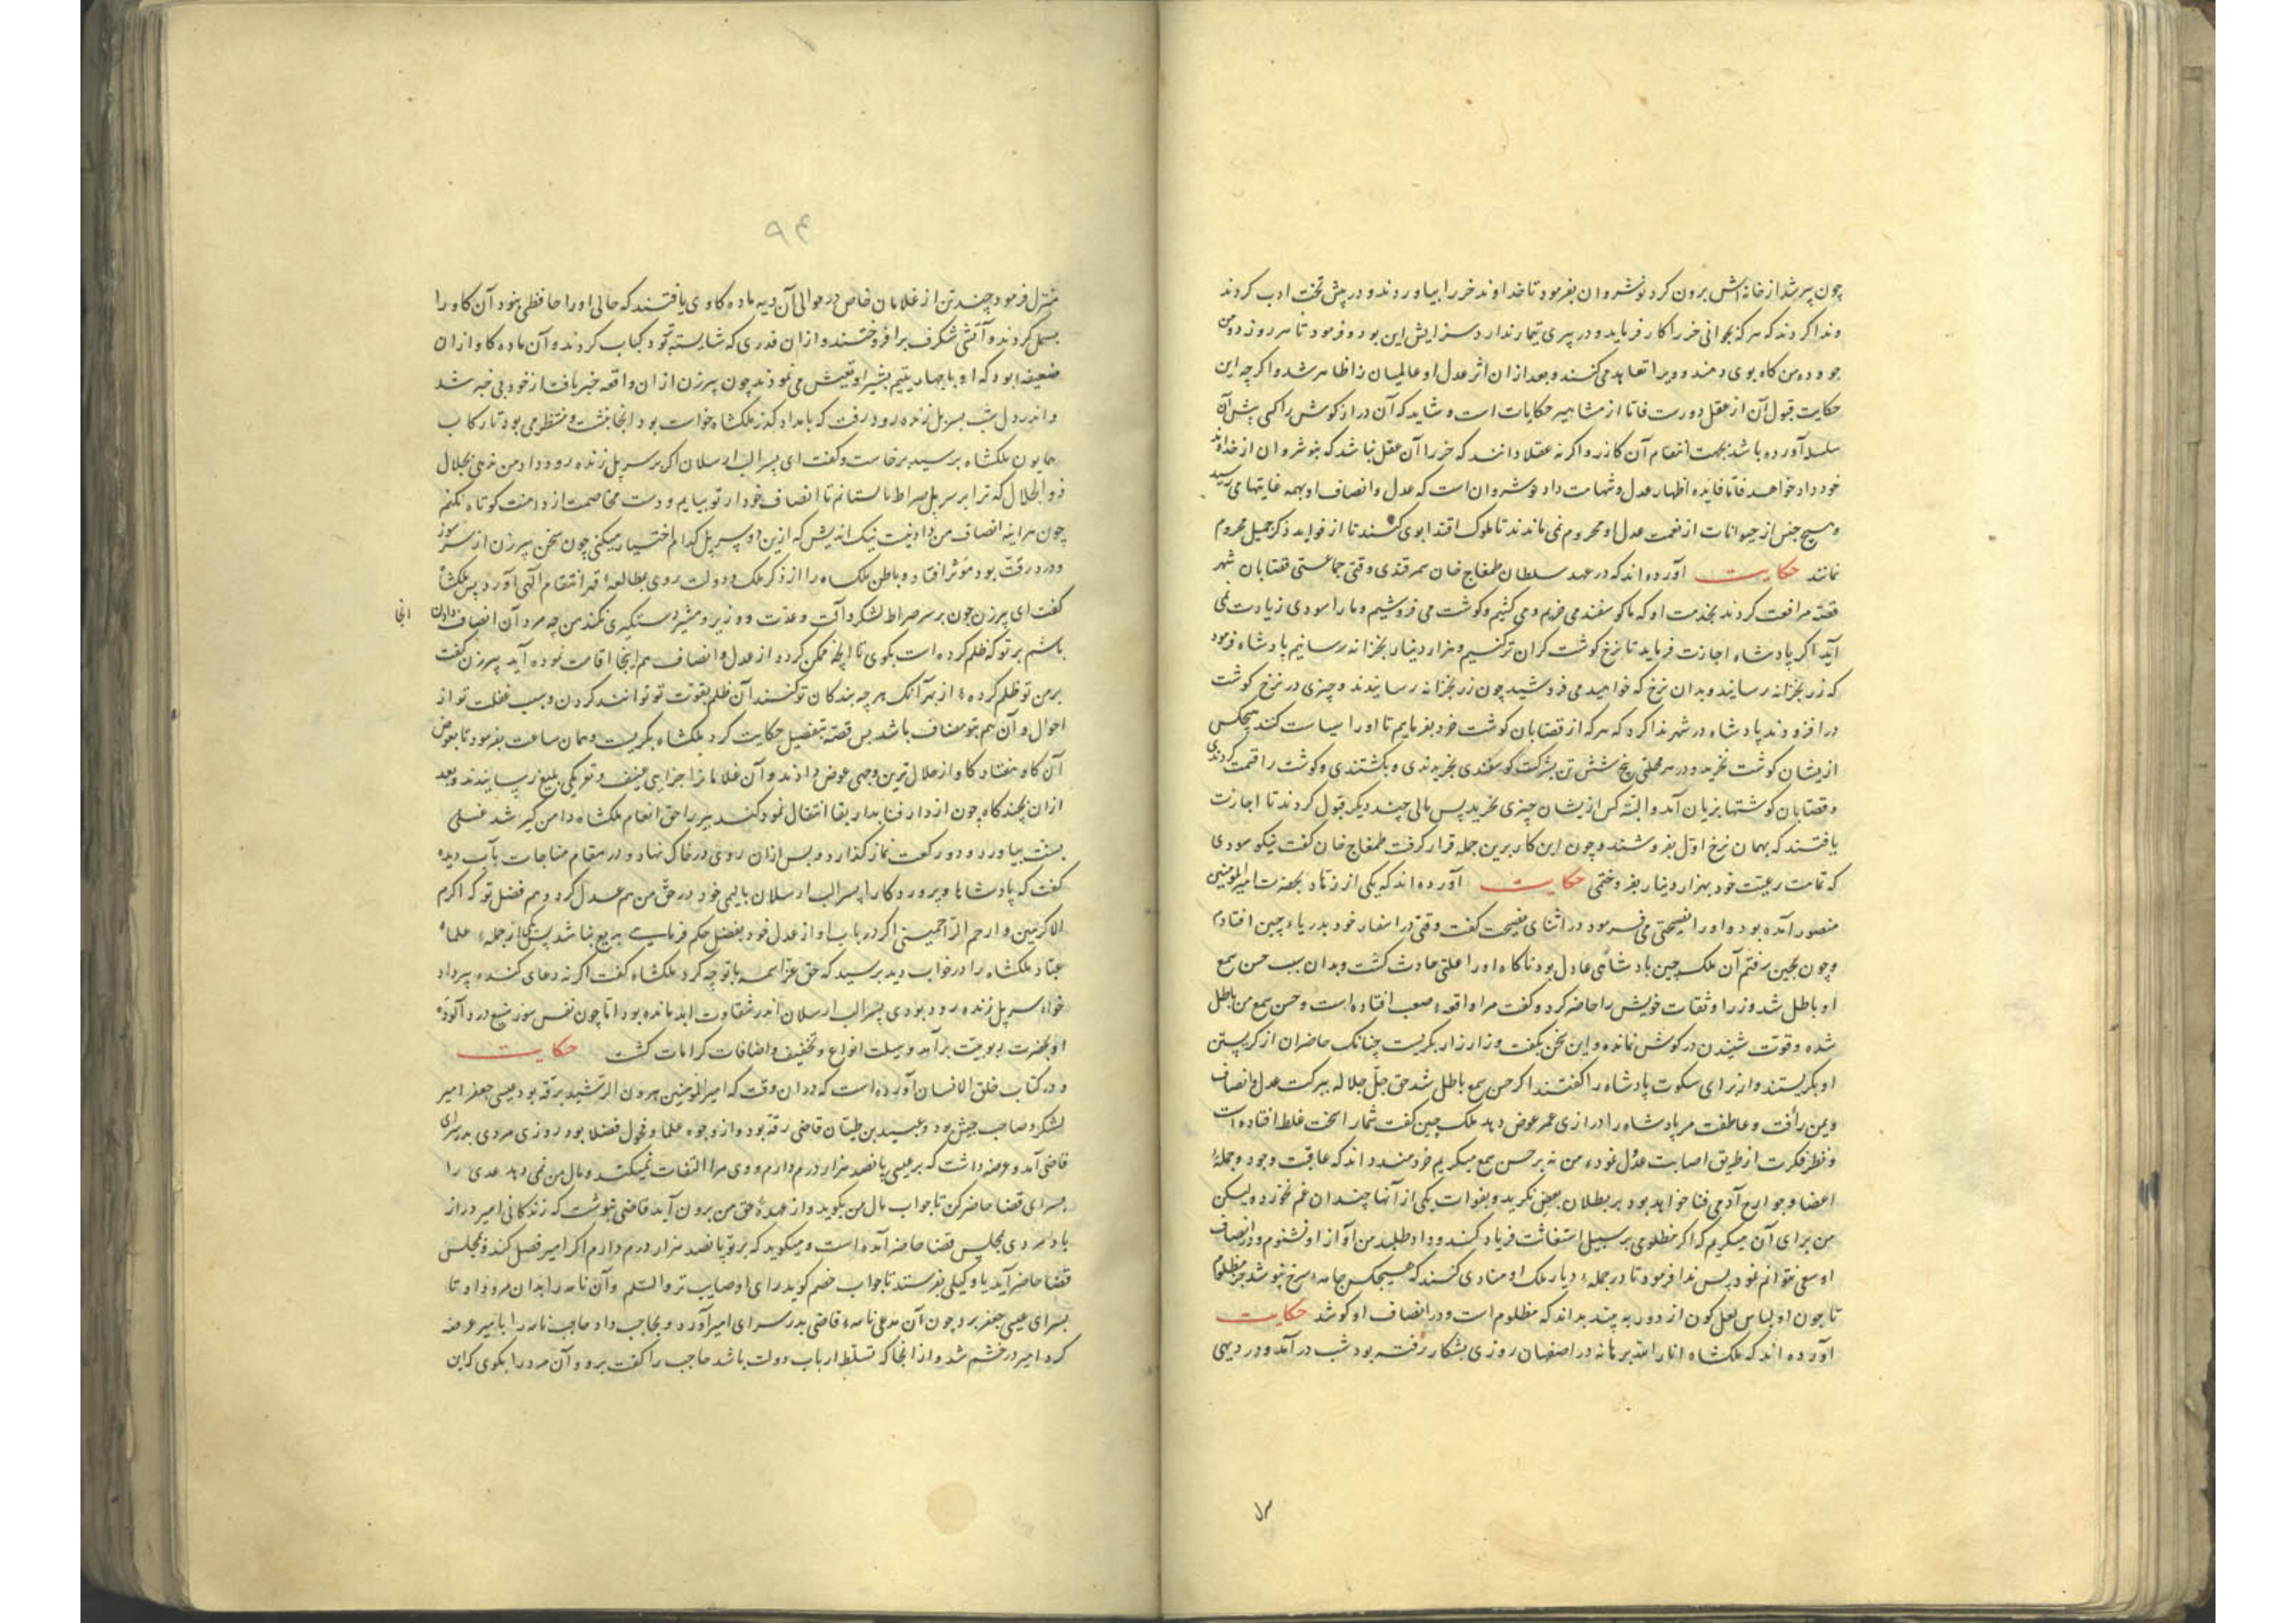 چون پیر شد از خانه‌اش برون کرد نوشروان بفرمود تا خداوند خر را بیاوردند و در پیش تخت ادب کردند
و ندا کردند که هر که بجوانی خر را کار فرماید و در پیری تیمار ندارد سزایش این بود و فرمود تا هر روز ده من
جو و ده من کاه بوی دهند و ویرا تعاهد می‌کنند و بعد از ان اثر عدل او عالمیان را ظاهر شد و اگر چه این
حکایت قبول آن از عقل دورست فاما از مشاهیر حکایات است و شاید که آن دراز گوش را کسی پیش آن
سلسله آورده باشد بجهت انتقام آن کازر و اگر نه عقلا دانند که خر را آن عقل نباشد که بنوشروان از خداوند
خود داد خواهد فاما فایده اظهار عدل و شهامت داد نوشروان است که عدل و انصاف او بهمه غایتها می‌رسید
و هیچ جنس از حیوانات از نعمت عدل او محروم نمی‌ماندند تا ملوک اقتدا بوی کنند تا از فواید ذکر جمیل محروم
نمانند حکایت آورده اند که در عهد سلطان طمغاج خان سمرقندی وقتی جماعتی قصابان شهر
قصه مرافعت کردند بخدمت او که ما گوسفند می خریم و می کشیم و گوشت می فروشیم و ما را سودی زیادت نمی
آید اگر پادشاه اجازت فرماید تا نرخ گوشت گران تر کنیم و هزار دینار بخزانه رسانیم پادشاه فرمود
که زر بخزانه رسانید و بدان نرخ که خواهید می فروشید چون زر بخزانه رسانیدند و چیزی در نرخ گوشت
در افزودند پادشاه در شهر ندا کرد که هر که از قصابان گوشت خرد بفرمایم تا او را سیاست کنند هیچکس
ازیشان گوشت نخرید و در هر محلتی پنج شش تن بشرکت گوسفندی بخریدندی و بکشتندی و گوشت را قسمت کردندی
و قصابان گوشتها بزیان آمد و البته کس ازیشان چیزی نخرید پس مالی چند دیگر قبول کردند تا اجازت
یافتند که بهمان نرخ اول بفروشند و چون این کار برین جمله قرار گرفت طمغاج خان گفت نیکو سودی
که تمامت رعیت خود بهزار دینار بفروختمی حکایت آورده اند که یکی از زهاد بحضرت امیرالمؤمنین
منصور آمده بود و او را نصیحتی می فرمود در اثنای نصیحت گفت وقتی در اسفار خود بدریاء چین افتادم
و چون بچین رفتم آن ملک چین پادشاهی عادل بود ناگاه او را علتی حادث گشت و بدان سبب حس سمع
او باطل شد وزرا و ثقات خویش را حاضر کرد و گفت مرا واقعه صعب افتاده است و حس سمع من باطل
شده و قوت شنیدن در گوش نمانده و این سخن بگفت و زار زار بگریست چنانک حاضران از گریستن
او بگریستند و از برای سکوت پادشاه را گفتند اگر حس سمع باطل شد حق جل جلاله ببرکت عدل و انصاف
و یمن رأفت و عاطفت مر پادشاه را درازی عمر عوض دهد ملک چین گفت شما را سخت غلط افتاده است
و نظر فکرت از طریق اصابت عدول نموده من نه بر حس سمع میگریم خردمند داند که عاقبت وجود و جمله
اعضا و جوارح آدمی فنا خواهد بود بر بطلان بعضی نگرید و بفوات یکی از آنها چندان غم نخورد و لیکن
من برای آن میگریم که اگر مظلومی بر سبیل استغاثت فریاد کند و داد طلبد من آواز او نشنوم و در انصاف
او سعی نتوانم نمود پس ندا فرمود تا در جمله دیار ملک او منادی کنند که هیچکس جامه سرخ نپوشد جز مظلوم
تا چون او لباس لعل گون از دور به بیند بداند که مظلوم است و در انصاف او کوشد حکایت
آورده اند که ملکشاه انار الله برهانه در اصفهان روزی بشکار رفته بود شب در آمد و در دیهی
۹۴
منزل فرمود چند تن از غلامان خاص در حوالی آن دیه ماده گاوی یافتند که حالی او را حافظی نبود آن گاو را
بسمل کردند و آتشی شگرف برافروختند و از ان قدری که شایسته تر بود کباب کردند و آن ماده گاو از ان
ضعیفه بود که او با چهار یتیم بشیر او تعیش می نمودند چون پیر زن از ان واقعه خبر یافت از خود بی خبر شد
و اندر دل شب بسر پل زنده رود رفت که بامداد گذر ملکشاه خواست بود انجا بنشست و منتظر می بود تا رکاب
همایون ملکشاه برسید برخاست و گفت ای پسر الب ارسلان اگر بر سر پل زنده رود داد من ندهی بجلال
ذوالجلال که ترا بر سر پل صراط نا بستانم تا انصاف خود از تو بیابم و دست مخاصمت از دامنت کوتاه نکنم
چون هراینه انصاف من دادنیست نیک اندیش که ازین دو سر پل کدام اختیار میکنی چون سخن پیر زن از سر سوز
و درد رقت بود مؤثر افتاد و باطن ملکشاه را از ذکر ملک و دولت روی بمطالعه قهر انتقام الهی آورد پس ملکشاه
گفت ای پیر زن چون بر سر صراط لشکر و آلت و عدت و وزیر و مشیر دستگیری نکند من چه مرد آن انصاف دادن انجا
باشم بر تو که ظلم کرده است بگوی تا آنچه ممکن گردد از عدل و انصاف هم اینجا اقامت نموده آید پیر زن گفت
بر من تو ظلم کرده از بهر آنک هر چه بندگان تو کنند آن ظلم بقوت تو توانند کردن و بسبب غفلت تو از
احوال و آن هم بتو مضاف باشد پس قصه بتفصیل حکایت کرد ملکشاه بگریست و همان ساعت بفرمود تا بعوض
آن گاو هفتاد گاو از حلال ترین وجهی عوض دادند و آن غلامان را جزایی عنیف و تعریکی بلیغ رسانیدند و بعد
ازان بچند گاه چون از دار فنا بدار بقا انتقال نمود گنده پیر را حق انعام ملکشاه دامن گیر شد غسلی
بسنت بیاورد و دو رکعت نماز گذارد و پس ازان روی در خاک نهاد و در مقام مناجات بآب دیده
گفت که پادشاها و پروردگارا پسر الب ارسلان بالیمی خود در حق من هم عدل کرد و هم فضل تو که اکرم
الاکرمین و ارحم الراحمینی اگر در باب او از عدل خود بفضل حکم فرمایی بدیع نباشد پس یکی از جمله علماء
عباد ملکشاه را در خواب دید برسید که حق عز اسمه با تو چه کرد ملکشاه گفت اگر نه دعای گنده پیر داد
خواه سر پل زنده رود بودی پسر الب ارسلان اندر شقاوت ابد مانده بود اما چون نفس سوز شبع درد آلوده
او بحضرت ربوبیت برآمد وسیلت انواع و تخفیف و اضافات کرامات گشت حکایت
و در کتاب خلق الانسان آورده است که دران وقت که امیرالمؤمنین هرون الرشید برقه بود عیسی جعفر امیر
لشکر و صاحب جیش بود و عبید بن ظبیان قاضی رقه بود و از وجوه علما و فحول فضلا بود روزی مردی بدر سرای
قاضی آمد و عرضه داشت که بر عیسی پانصد هزار درم دارم و وی مرا التفات نمیکند و مال من نمی دهد عدی را
بسرای قضا حاضر کن تا جواب مال من بگوید و از عهده حق من برون آید قاضی بنوشت که زندگانی امیر دراز
باد مردی بمجلس قضا حاضر آمده است و میگوید که بر تو پانصد هزار درم دارم اگر امیر فضل کند و بمجلس
قضا حاضر آید یا وکیلی بفرستد تا جواب خصم گوید رای او صایب تر والسلم و آن نامه را بدان مرد داد تا
بسرای عیسی جعفر برد چون آن مدعی نامه قاضی بدر سرای امیر آورد و بحاجب داد حاجب نامه را بامیر عرضه
کرد امیر در خشم شد و از انجا که تسلط ارباب دولت باشد حاجب را گفت برو و آن مرد را بگوی که این